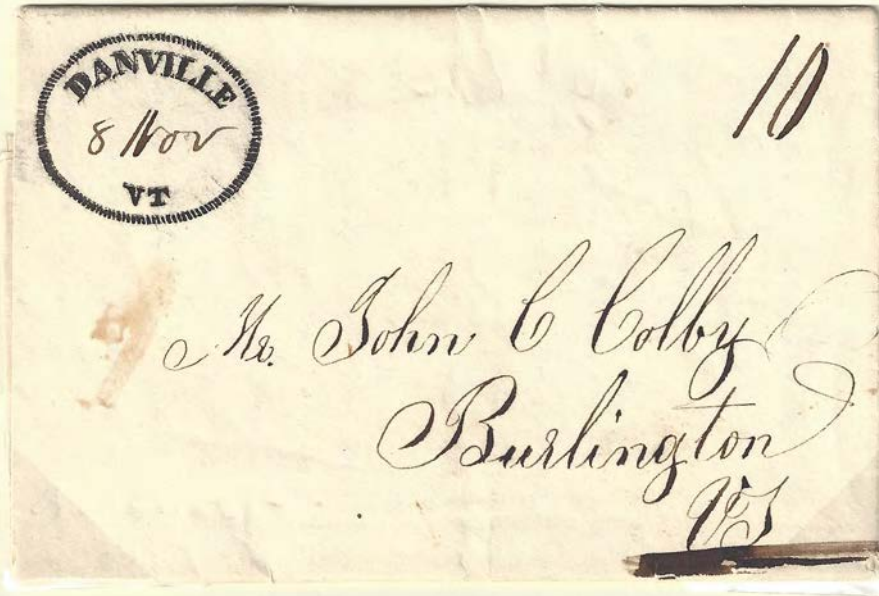 DANVILLE
8 Nov
VT
10
Mr. John C Colby
Burlington
VT